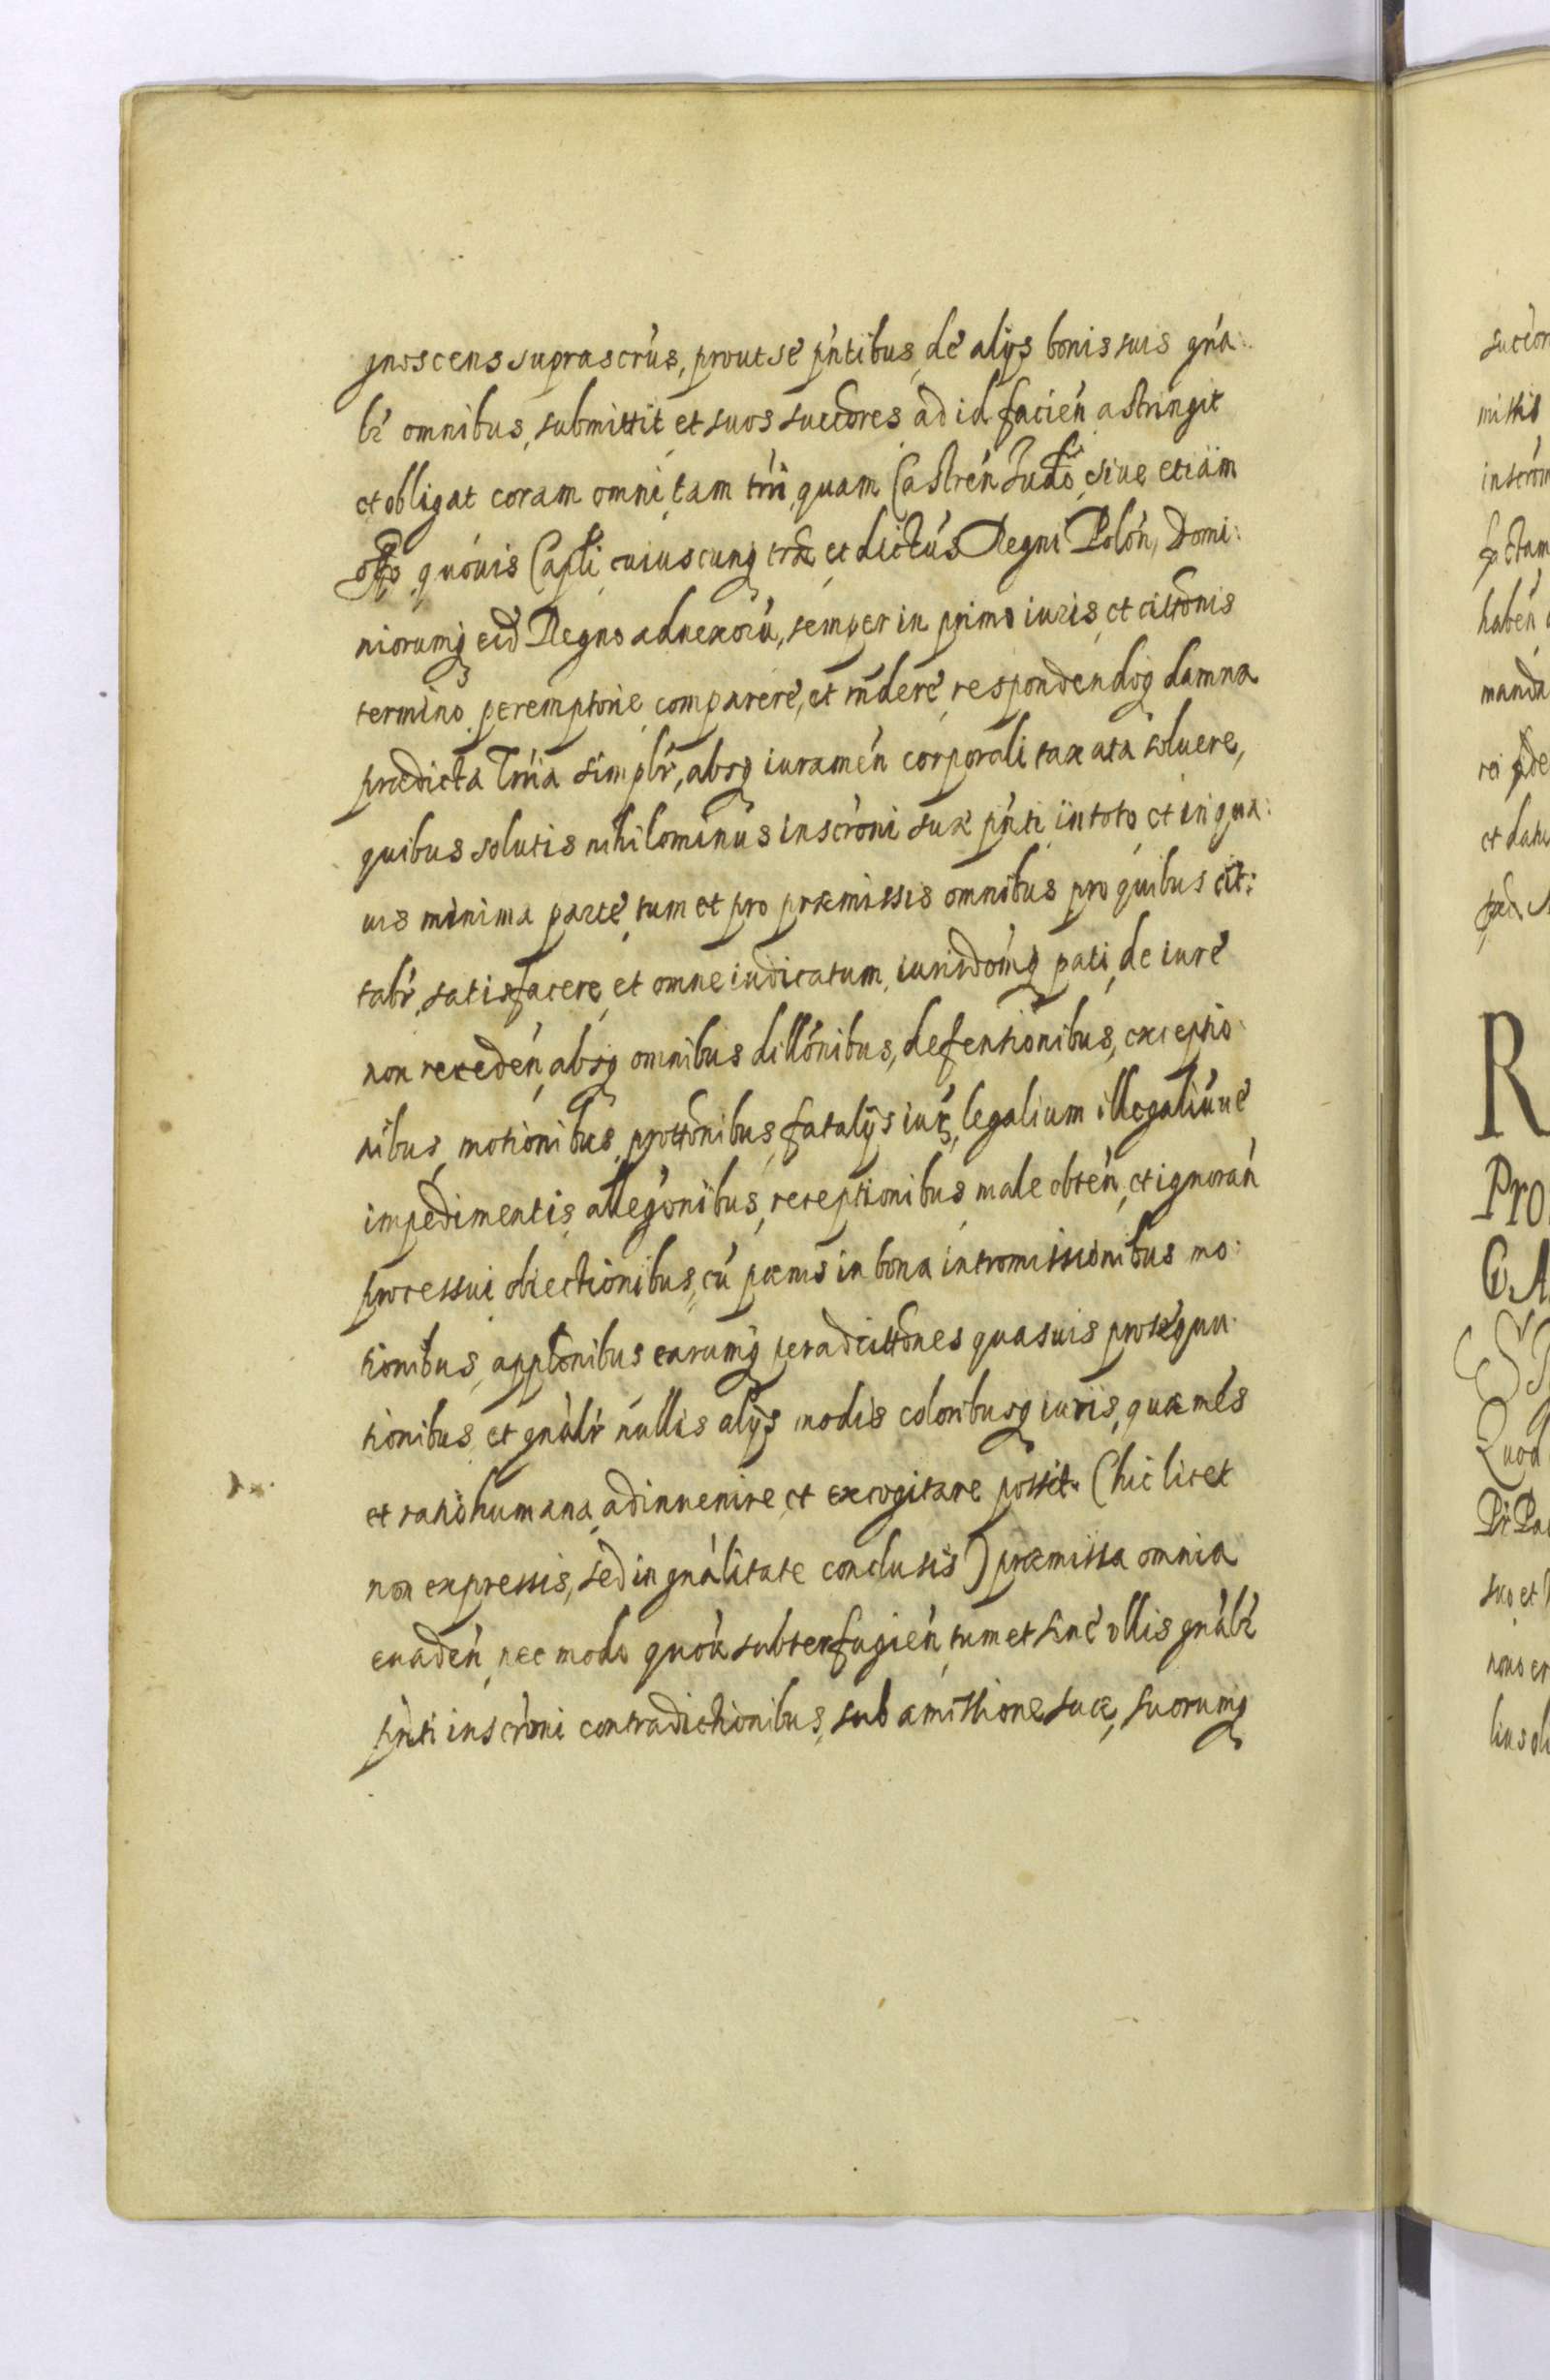 gnoscens suprascrús, prout se pńtibus, de alÿs bonis suis gńa:
lr̃ omnibus, submittit et suos succõres ad id facień astringit
et obligat coram omni, tam trrí, quam Castreń Judo, siue etiam
offo quouis Capli cuiuscunq trræ et dictús Regni Poloń, Domi:
niorumq eid Regno adnexorú, semper in primo iuris, et cittonis
termino peremptorie comparere, et rńdere, respondendoq damna
prædicta Trria simplr, absq iuramén corporali taxata soluere,
quibus solutis nihilominus inscróni suæ pńti in toto et in qua:
uis minima parte, tum et pro præmissis omnibus pro quibus cit:
tabr, satisfacere, et omne iudicatum, iurisdomq pati, de iure
non receden, absq omnibus dillónibus, defensionibus, exceptio:
nibus, motionibus, prottonibus, fatalÿs iur, legalium illegaliúue
impedimentis, allegónibus, receptionibus, male obteń, et ignorań
processui obiectionibus, cú pœnis in bona intromissionibus mo:
tionibus, applonibus, earumq per adcittones quasuis prosequu:
tionibus, et gnalr nullis alÿs modis coloribusq iuris, quæ més
et ratio humana, adinuenire, et excogitare possit. (hic licet
non expressis, sed in gnálitate conclusis) præmissa omnia
euadeń, nec modo quóu subterfugień, tum et sine ullis gnálr
pńti inscróni contradictionibus, sub amissione suæ, suorumq
succor
missis
inscrón
factam
habeń
manda
rei
et datu
R
Pro
Quod
suo et